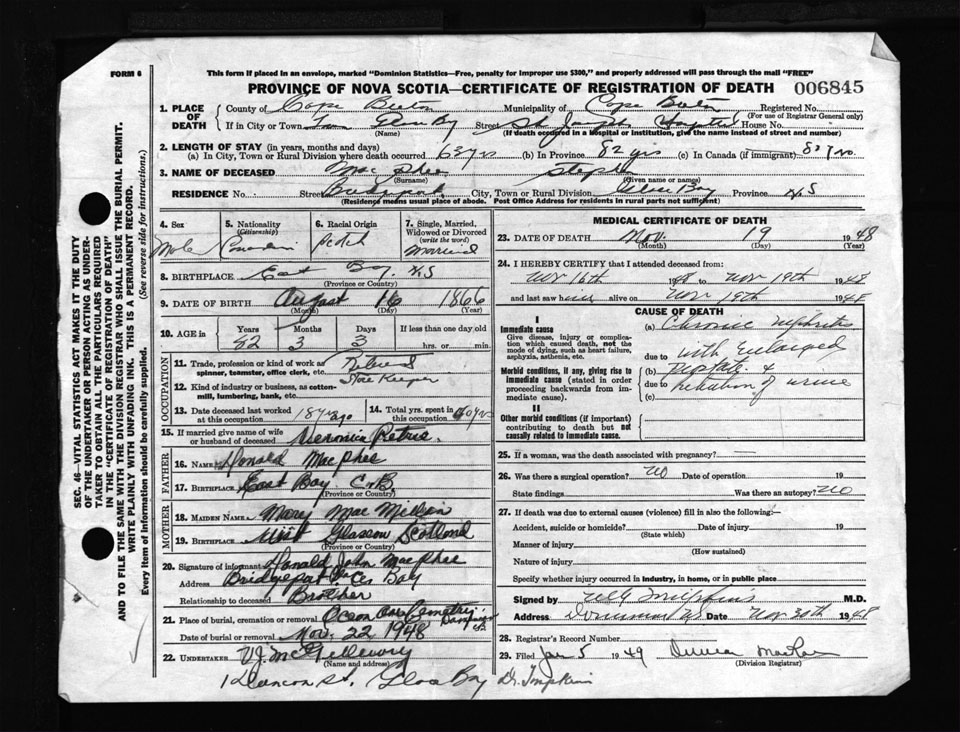 FORM 6
This form if placed in an envelope, marked "Dominion Statistics—Free, penalty for improper use $300," and properly addressed will pass through the mail "FREE"
PROVINCE OF NOVA SCOTIA—CERTIFICATE OF REGISTRATION OF DEATH 006845
1. PLACE OF DEATH
County of Cape Breton Municipality of Cape Breton Registered No.
(For use of Registrar General only)
If in City or Town Town Glace Bay Street St Joseph Hospital House No.
(Name) (If death occurred in a Hospital or Institution, give the name instead of street and number)
2. LENGTH OF STAY (in years, months and days)
(a) In City, Town or Rural Division where death occurred 63 yrs (b) In Province 82 yrs (c) In Canada (if immigrant)
3. NAME OF DECEASED Mac Phee Stephen
(Surname) (Given name or names)
RESIDENCE No. Street Bridgeport City, Town or Rural Division Glace Bay Province N.S
(Residence means usual place of abode. Post Office Address for residents in rural parts not sufficient)
4. Sex Male
5. Nationality (Citizenship) Canadian
6. Racial Origin Scotch
7. Single, Married, Widowed or Divorced (write the word) Married
8. BIRTHPLACE East Bay. N.S
(Province or Country)
9. DATE OF BIRTH August 16 1866
(Month) (Day) (Year)
10. AGE in Years Months Days If less than one day old
82 3 3 hrs. or min.
OCCUPATION
11. Trade, profession or kind of work as spinner, teamster, office clerk, etc. Retired
Store Keeper
12. Kind of industry or business, as cotton-mill, lumbering, bank, etc.
13. Date deceased last worked at this occupation 18 yrs ago 14. Total yrs. spent in this occupation
15. If married give name of wife or husband of deceased Veronica Petrie.
FATHER
16. NAME Donald MacPhee
17. BIRTHPLACE East Bay C.B
(Province or Country)
MOTHER
18. MAIDEN NAME Mary Mac
19. BIRTHPLACE Glasgow Scotland
(Province or Country)
20. Signature of informant Donald John MacPhee
Address Bridgeport Glace Bay
Relationship to deceased Brother
21. Place of burial, cremation or removal Cemetery.
Date of burial or removal Nov. 22 1948
22. UNDERTAKER V.J. McGillivary
(Name and address)
St, Glace Bay Dr. Tompkins
MEDICAL CERTIFICATE OF DEATH
23. DATE OF DEATH Nov. 19 1948
(Month) (Day) (Year)
24. I HEREBY CERTIFY that I attended deceased from:
Nov 16th 1948 to Nov 19th 1948
and last saw him alive on Nov 19th 1948
CAUSE OF DEATH
I
Immediate cause (a) Chronic nephritis
Give disease, injury or complication which caused death, not the mode of dying, such as heart failure, asphyxia, asthenia, etc.
due to with enlarged
Morbid conditions, if any, giving rise to immediate cause (stated in order proceeding backwards from immediate cause).
(b) prostate &
due to retention of urine
(c)
II
Other morbid conditions (if important) contributing to death but not causally related to immediate cause.
25. If a woman, was the death associated with pregnancy? —
26. Was there a surgical operation? No Date of operation 19
State findings Was there an autopsy? No
27. If death was due to external causes (violence) fill in also the following:—
Accident, suicide or homicide? Date of injury 19
(State which)
Manner of injury
(How sustained)
Nature of injury
Specify whether injury occurred in industry, in home, or in public place
Signed by Tompkins M.D.
Address Dominion Date Nov 30th 1948
28. Registrar's Record Number
29. Filed Jan 5 1949
(Division Registrar)
SEC. 46—VITAL STATISTICS ACT MAKES IT THE DUTY
OF THE UNDERTAKER OR PERSON ACTING AS UNDERTAKER TO OBTAIN ALL THE PARTICULARS REQUIRED
IN THE "CERTIFICATE OF REGISTRATION OF DEATH"
AND TO FILE THE SAME WITH THE DIVISION REGISTRAR WHO SHALL ISSUE THE BURIAL PERMIT.
WRITE PLAINLY WITH UNFADING INK. THIS IS A PERMANENT RECORD.
Every item of information should be carefully supplied. (See reverse side for instructions.)